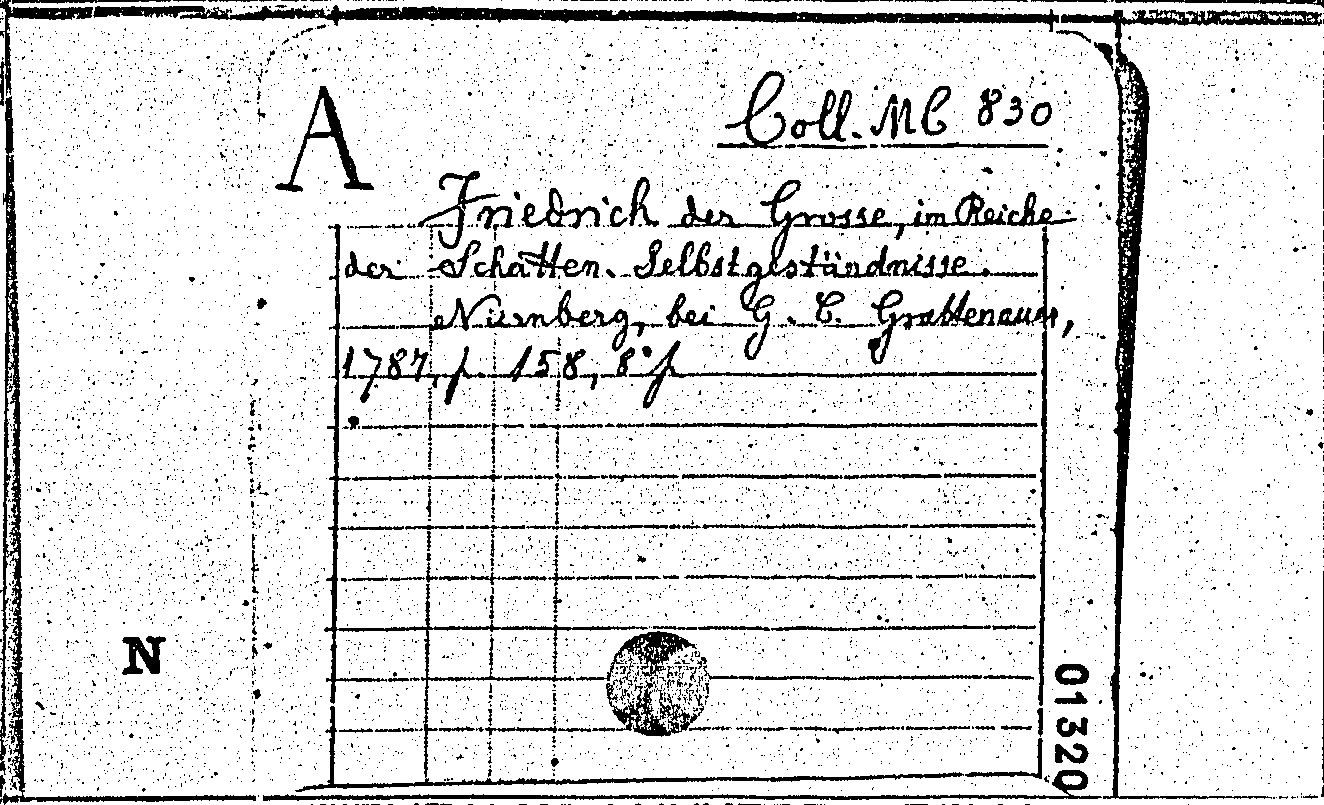 A
Coll. MC 830
Friedrich der Grosse, im Reiche
der Schatten. Selbstgeständnisse.
Nürnberg, bei G. C. Grattenauer,
1787, p. 158, 8° p
N
01320